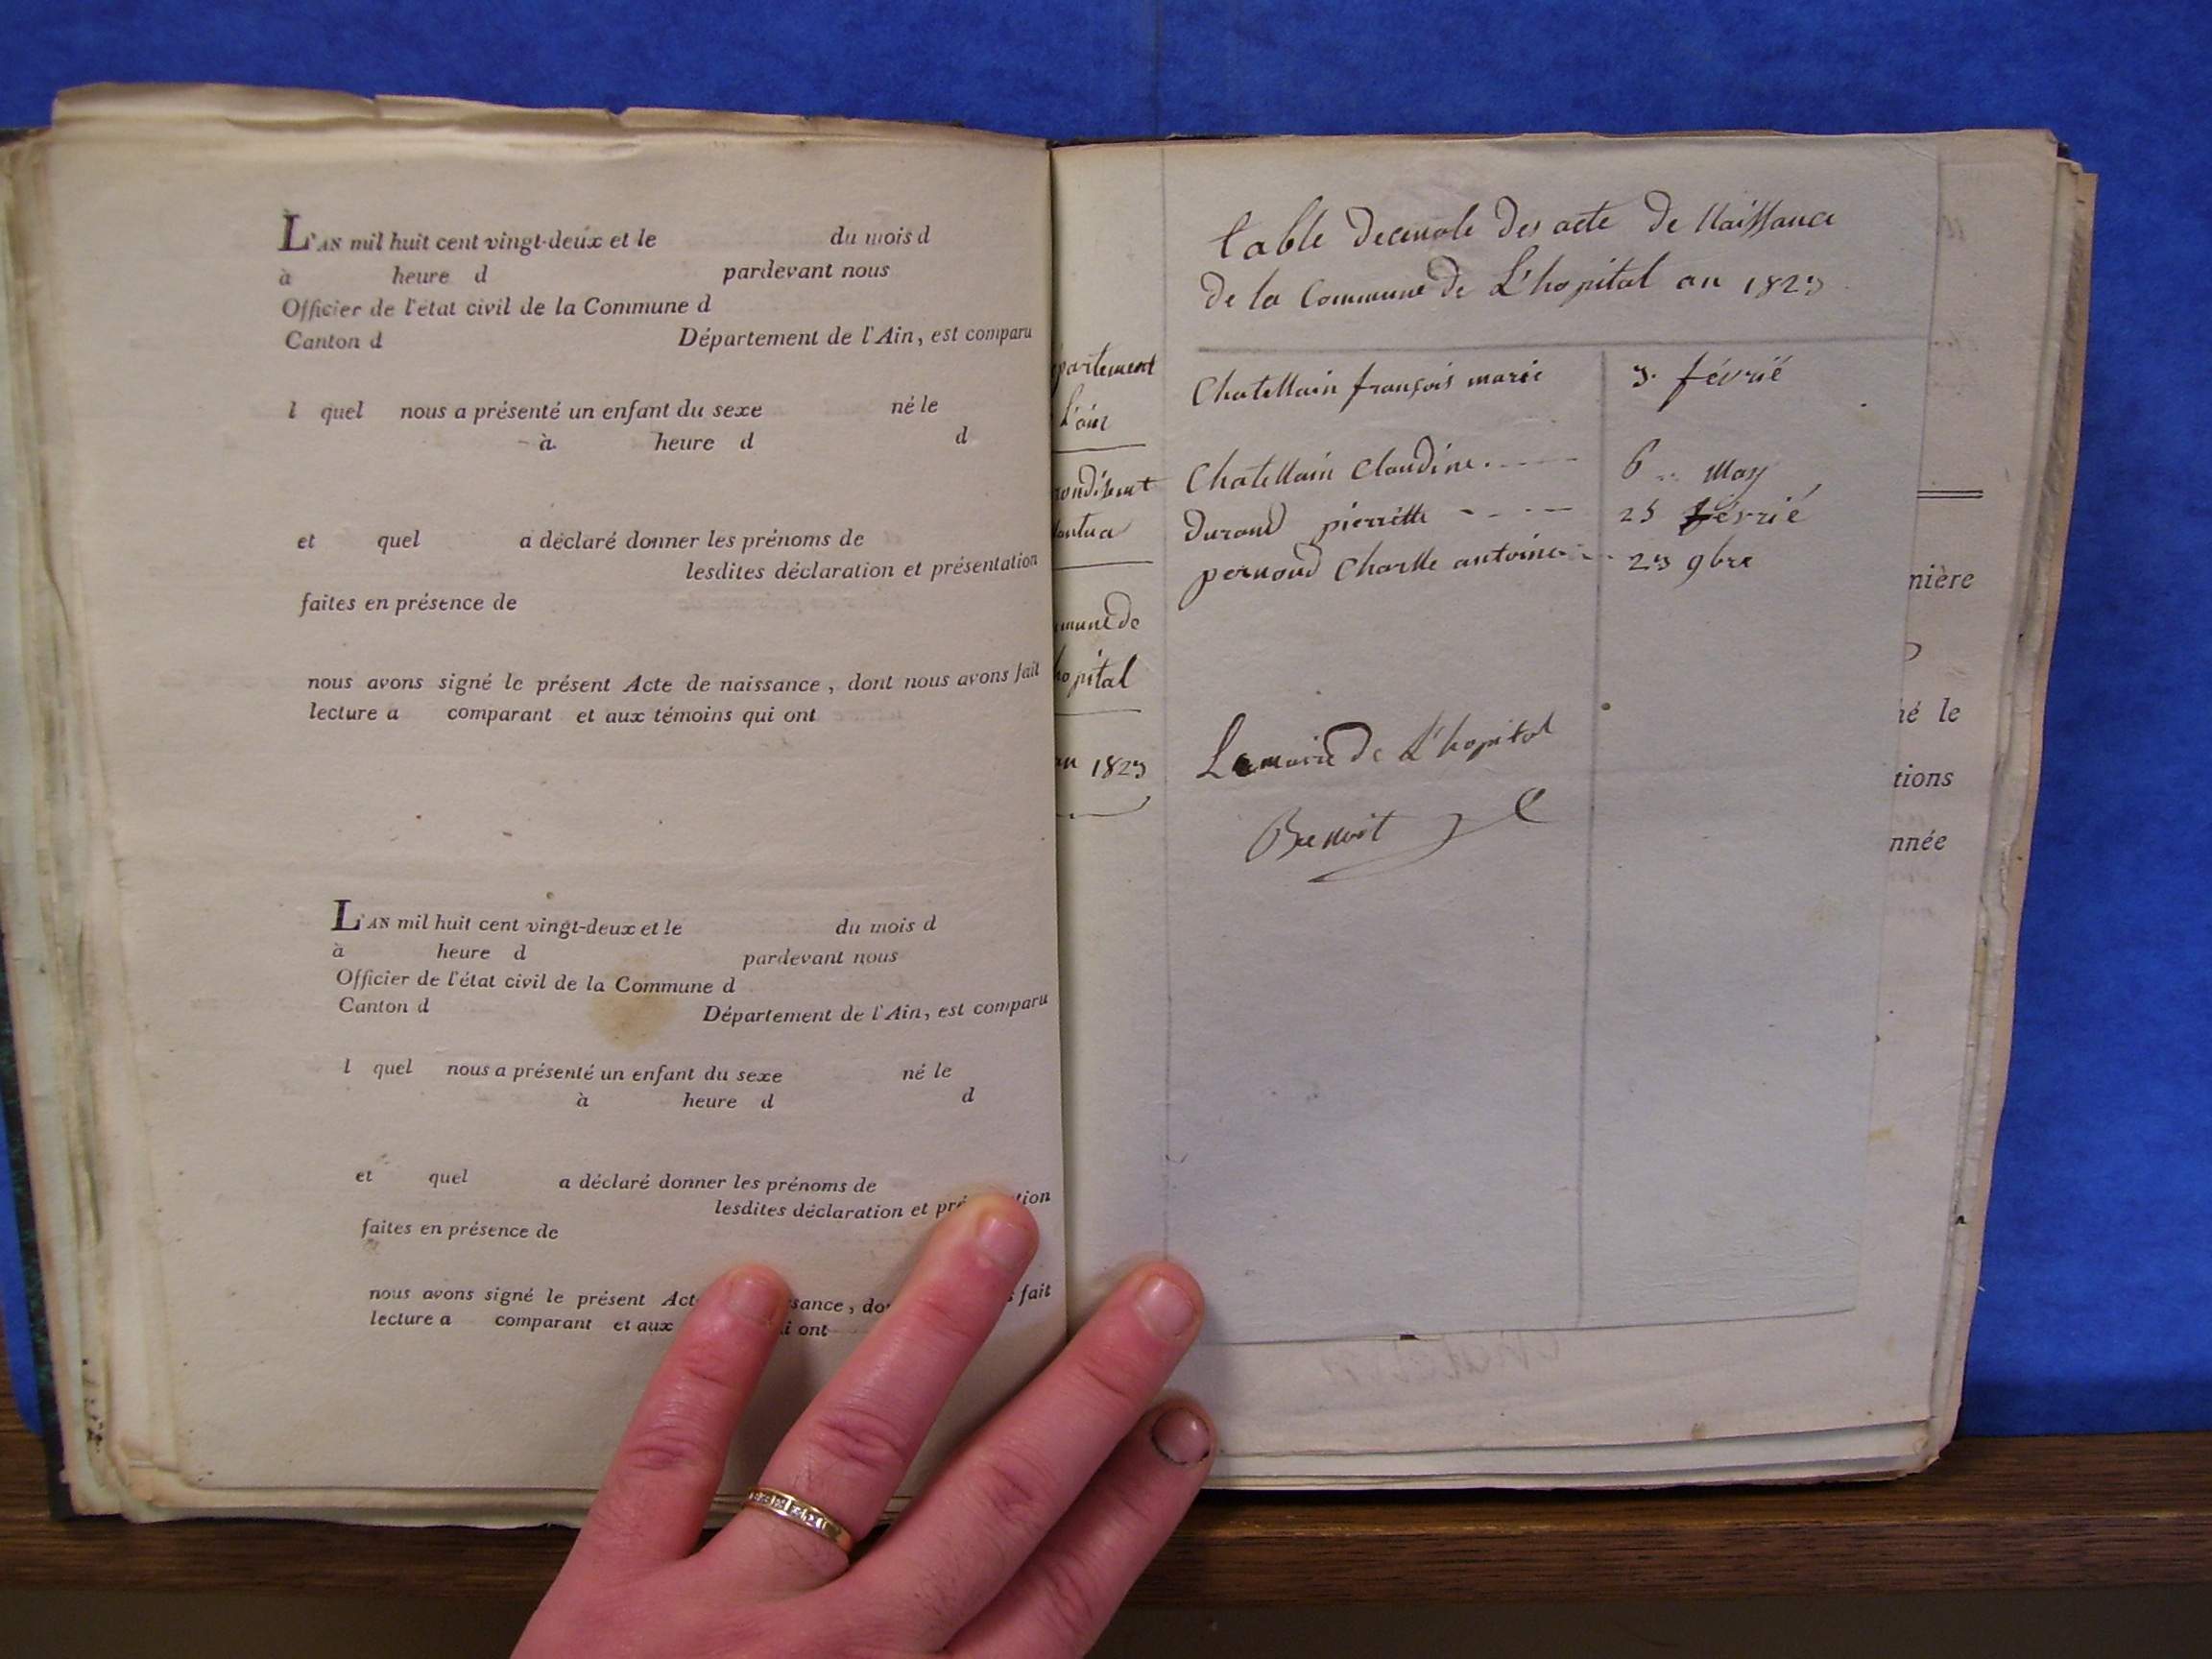 L'AN mil huit cent vingt-deux et le du mois d
à heure d pardevant nous
Officier de l'état civil de la Commune d
Canton d Département de l'Ain, est comparu
l quel nous a présenté un enfant du sexe né le
à heure d d
et quel a déclaré donner les prénoms de
lesdites déclaration et présentation
faites en présence de
nous avons signé le présent Acte de naissance, dont nous avons fait
lecture a comparant et aux témoins qui ont
L'AN mil huit cent vingt-deux et le du mois d
à heure d pardevant nous
Officier de l'état civil de la Commune d
Canton d Département de l'Ain, est comparu
l quel nous a présenté un enfant du sexe né le
à heure d d
et quel a déclaré donner les prénoms de
lesdites déclaration et pré tion
faites en présence de
nous avons signé le présent Act sance, do s fait
lecture a comparant et aux i ont
partement
L'ain
rondisemt
antua
mune de
hopital
an 1823
table decenale des acte de Naissance
de la Commune de L'hopital an 1823
Chatellain françois marie 3. févrië
Chatellain Claudine 6 May
durand pierrette 25 févrié
pernoud Charlle antoine 23 9bre
Le maire de L'hopital
Benoit
nière
né le
tions
nnée